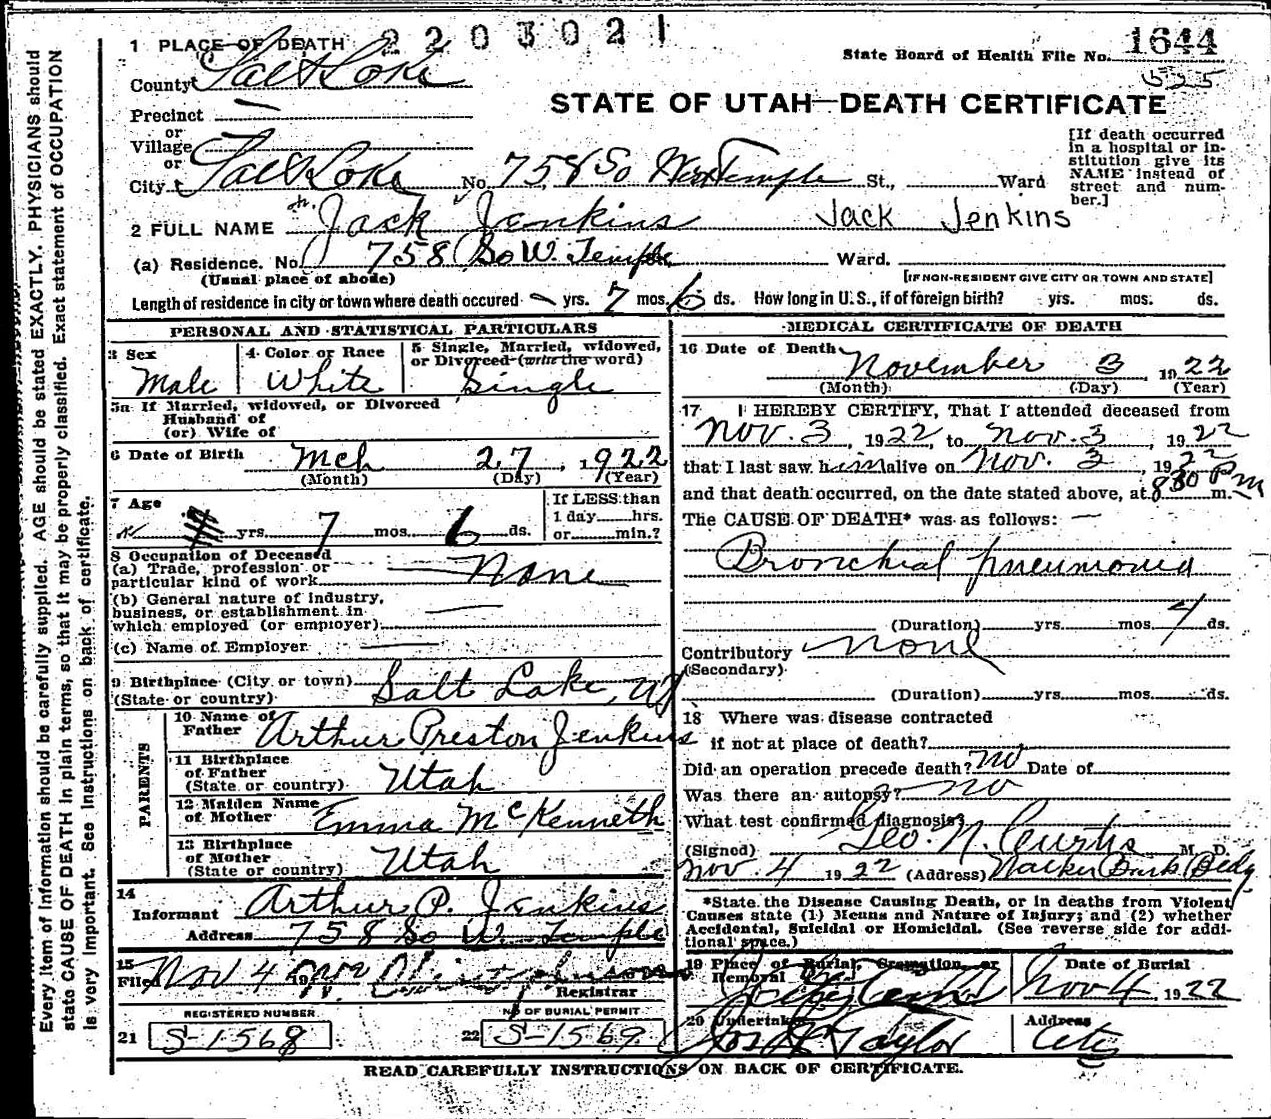 Every item of Information should be carefully supplied. AGE should be stated EXACTLY. PHYSICIANS should
state CAUSE OF DEATH in plain terms, so that it may be properly classified. Exact statement of OCCUPATION
is very important. See Instructions on back of certificate.
1 PLACE OF DEATH 2203021
State Board of Health File No. 1644
525
County Salt Lake
STATE OF UTAH—DEATH CERTIFICATE
Precinct —
or
Village
or
City Salt Lake No. 758 So West Temple St., Ward
[If death occurred
in a hospital or in-
stitution give its
NAME instead of
street and num-
ber.]
2 FULL NAME Jack Jenkins Jack Jenkins
(a) Residence. No. 758 So W. Temple Ward.
(Usual place of abode) [IF NON-RESIDENT GIVE CITY OR TOWN AND STATE]
Length of residence in city or town where death occured – yrs. 7 mos. 6 ds. How long in U. S., if of foreign birth? yrs. mos. ds.
PERSONAL AND STATISTICAL PARTICULARS
3 Sex Male
4 Color or Race White
5 Single, Married, widowed,
or Divorced (write the word)
Single
3a If Married, widowed, or Divorced
Husband of
(or) Wife of
6 Date of Birth Mch 27, 1922
(Month) (Day) (Year)
7 Age
yrs. 7 mos. 6 ds.
If LESS than
1 day hrs.
or min.?
8 Occupation of Deceased
(a) Trade, profession or
particular kind of work None
(b) General nature of industry,
business, or establishment in
which employed (or employer)
(c) Name of Employer
9 Birthplace (City or town) Salt Lake, Ut
(State or country)
PARENTS
10 Name of
Father Arthur Preston Jenkins
11 Birthplace
of Father
(State or country) Utah
12 Maiden Name
of Mother Emma McKenneth
13 Birthplace
of Mother
(State or country) Utah
14
Informant Arthur P. Jenkins
Address 758 So W. Temple
15
Filed Nov 4 19
Registrar
REGISTERED NUMBER
21 S-1568
NO OF BURIAL PERMIT
22 S-1569
MEDICAL CERTIFICATE OF DEATH
16 Date of Death November 3 1922
(Month) (Day) (Year)
17 I HEREBY CERTIFY, That I attended deceased from
Nov. 3, 1922, to Nov. 3, 1922
that I last saw him alive on Nov. 3, 1922
and that death occurred, on the date stated above, at 830 Pm m.
The CAUSE OF DEATH* was as follows:
Bronchial pneumonia
(Duration) yrs. mos. 4 ds.
Contributory None
(Secondary)
(Duration) yrs. mos. ds.
18 Where was disease contracted
if not at place of death?
Did an operation precede death? No Date of
Was there an autopsy? No
What test confirmed diagnosis?
(Signed) Geo. N. Curtis M. D.
Nov. 4 1922 (Address) Walker Bank Bldg.
*State the Disease Causing Death, or in deaths from Violent
Causes state (1) Means and Nature of Injury; and (2) whether
Accidental, Suicidal or Homicidal. (See reverse side for addi-
tional space.)
19 Place of Burial, Cremation, or
Removal
Date of Burial
Nov 4, 1922
20 Undertaker Taylor
Address City
READ CAREFULLY INSTRUCTIONS ON BACK OF CERTIFICATE.